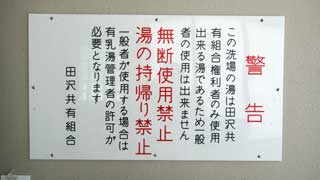 警告
この洗場の湯は田沢共
有組合権利者のみ使用
出来る湯であるため一般
者の使用は出来ません
無断使用禁止
湯の持帰り禁止
一般者が使用する場合は
有乳湯管理者の許可が
必要となります
田沢共有組合